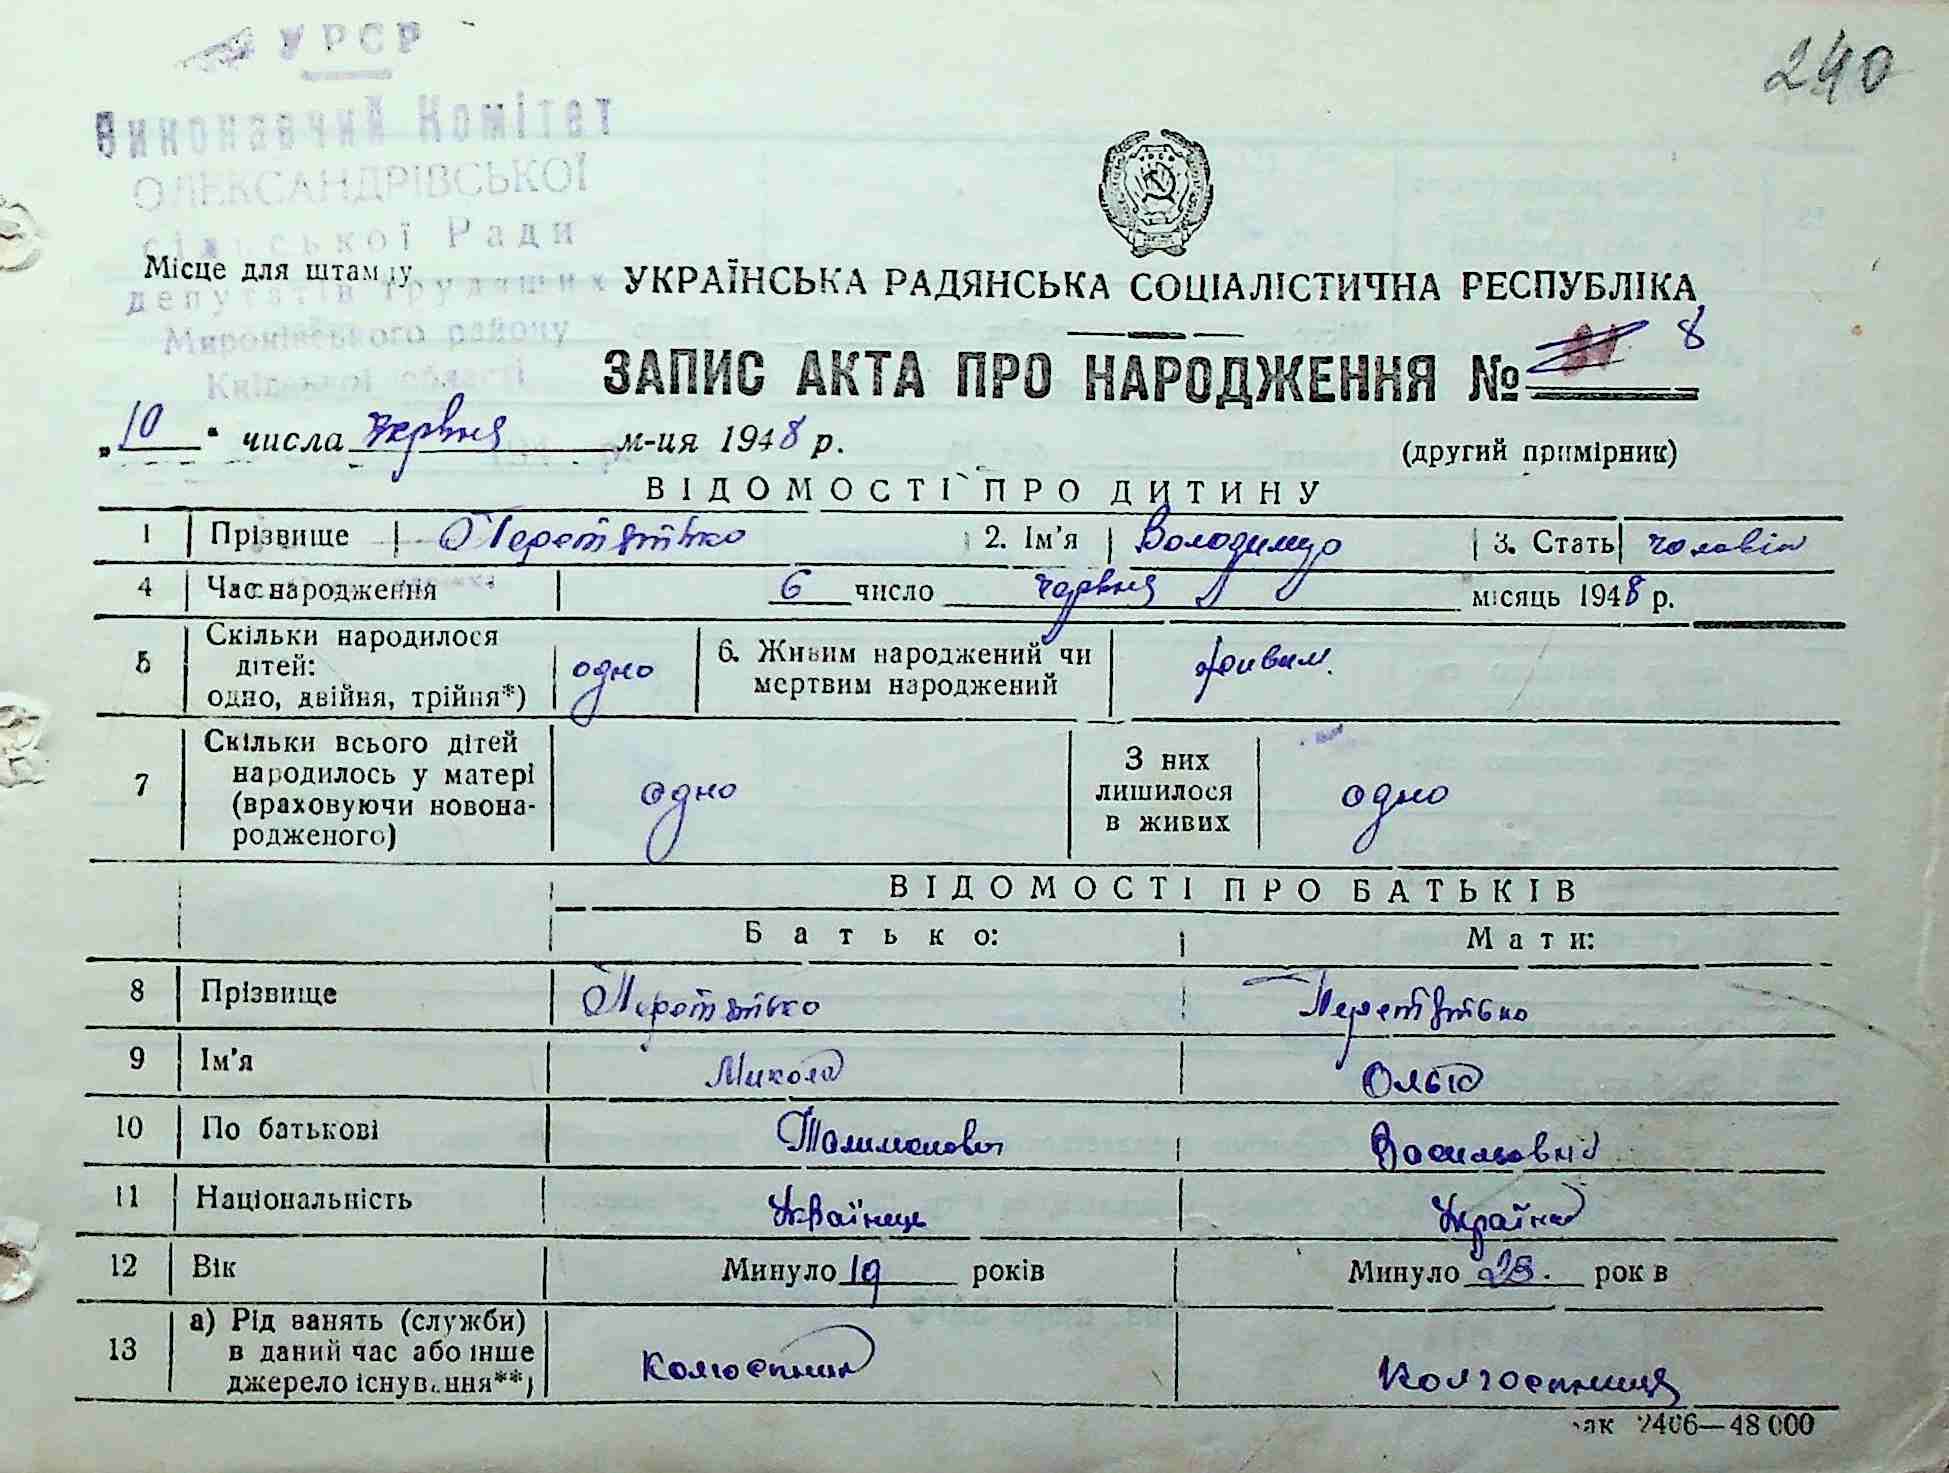 240
УРСР
Виконавчий Комітет
ОЛЕКСАНДРІВСЬКОЇ
сільської Ради
Місце для штампу
депутатів трудящих
Миронівського району
Київської області
УКРАЇНСЬКА РАДЯНСЬКА СОЦІАЛІСТИЧНА РЕСПУБЛІКА
ЗАПИС АКТА ПРО НАРОДЖЕННЯ № 8
„10“ числа червня м-ця 1948 р.
(другий примірник)
ВІДОМОСТІ ПРО ДИТИНУ
1 Прізвище Перетятько 2. Ім'я Володимир 3. Стать чоловіч
4 Час народження 6 число червня місяць 1948 р.
5 Скільки народилося дітей: одно, двійня, трійня*) одно 6. Живим народжений чи мертвим народжений живим.
7 Скільки всього дітей народилось у матері (враховуючи новонародженого) одно З них лишилося в живих одно
ВІДОМОСТІ ПРО БАТЬКІВ
Батько: Мати:
8 Прізвище Перетятько Перетятько
9 Ім'я Микола Ольга
10 По батькові Талимонович Василівна
11 Національність Українець Українка
12 Вік Минуло 19 років Минуло років
13 а) Рід занять (служби) в даний час або інше джерело існування**) Колгоспник Колгоспниця
Зак 2406—48 000